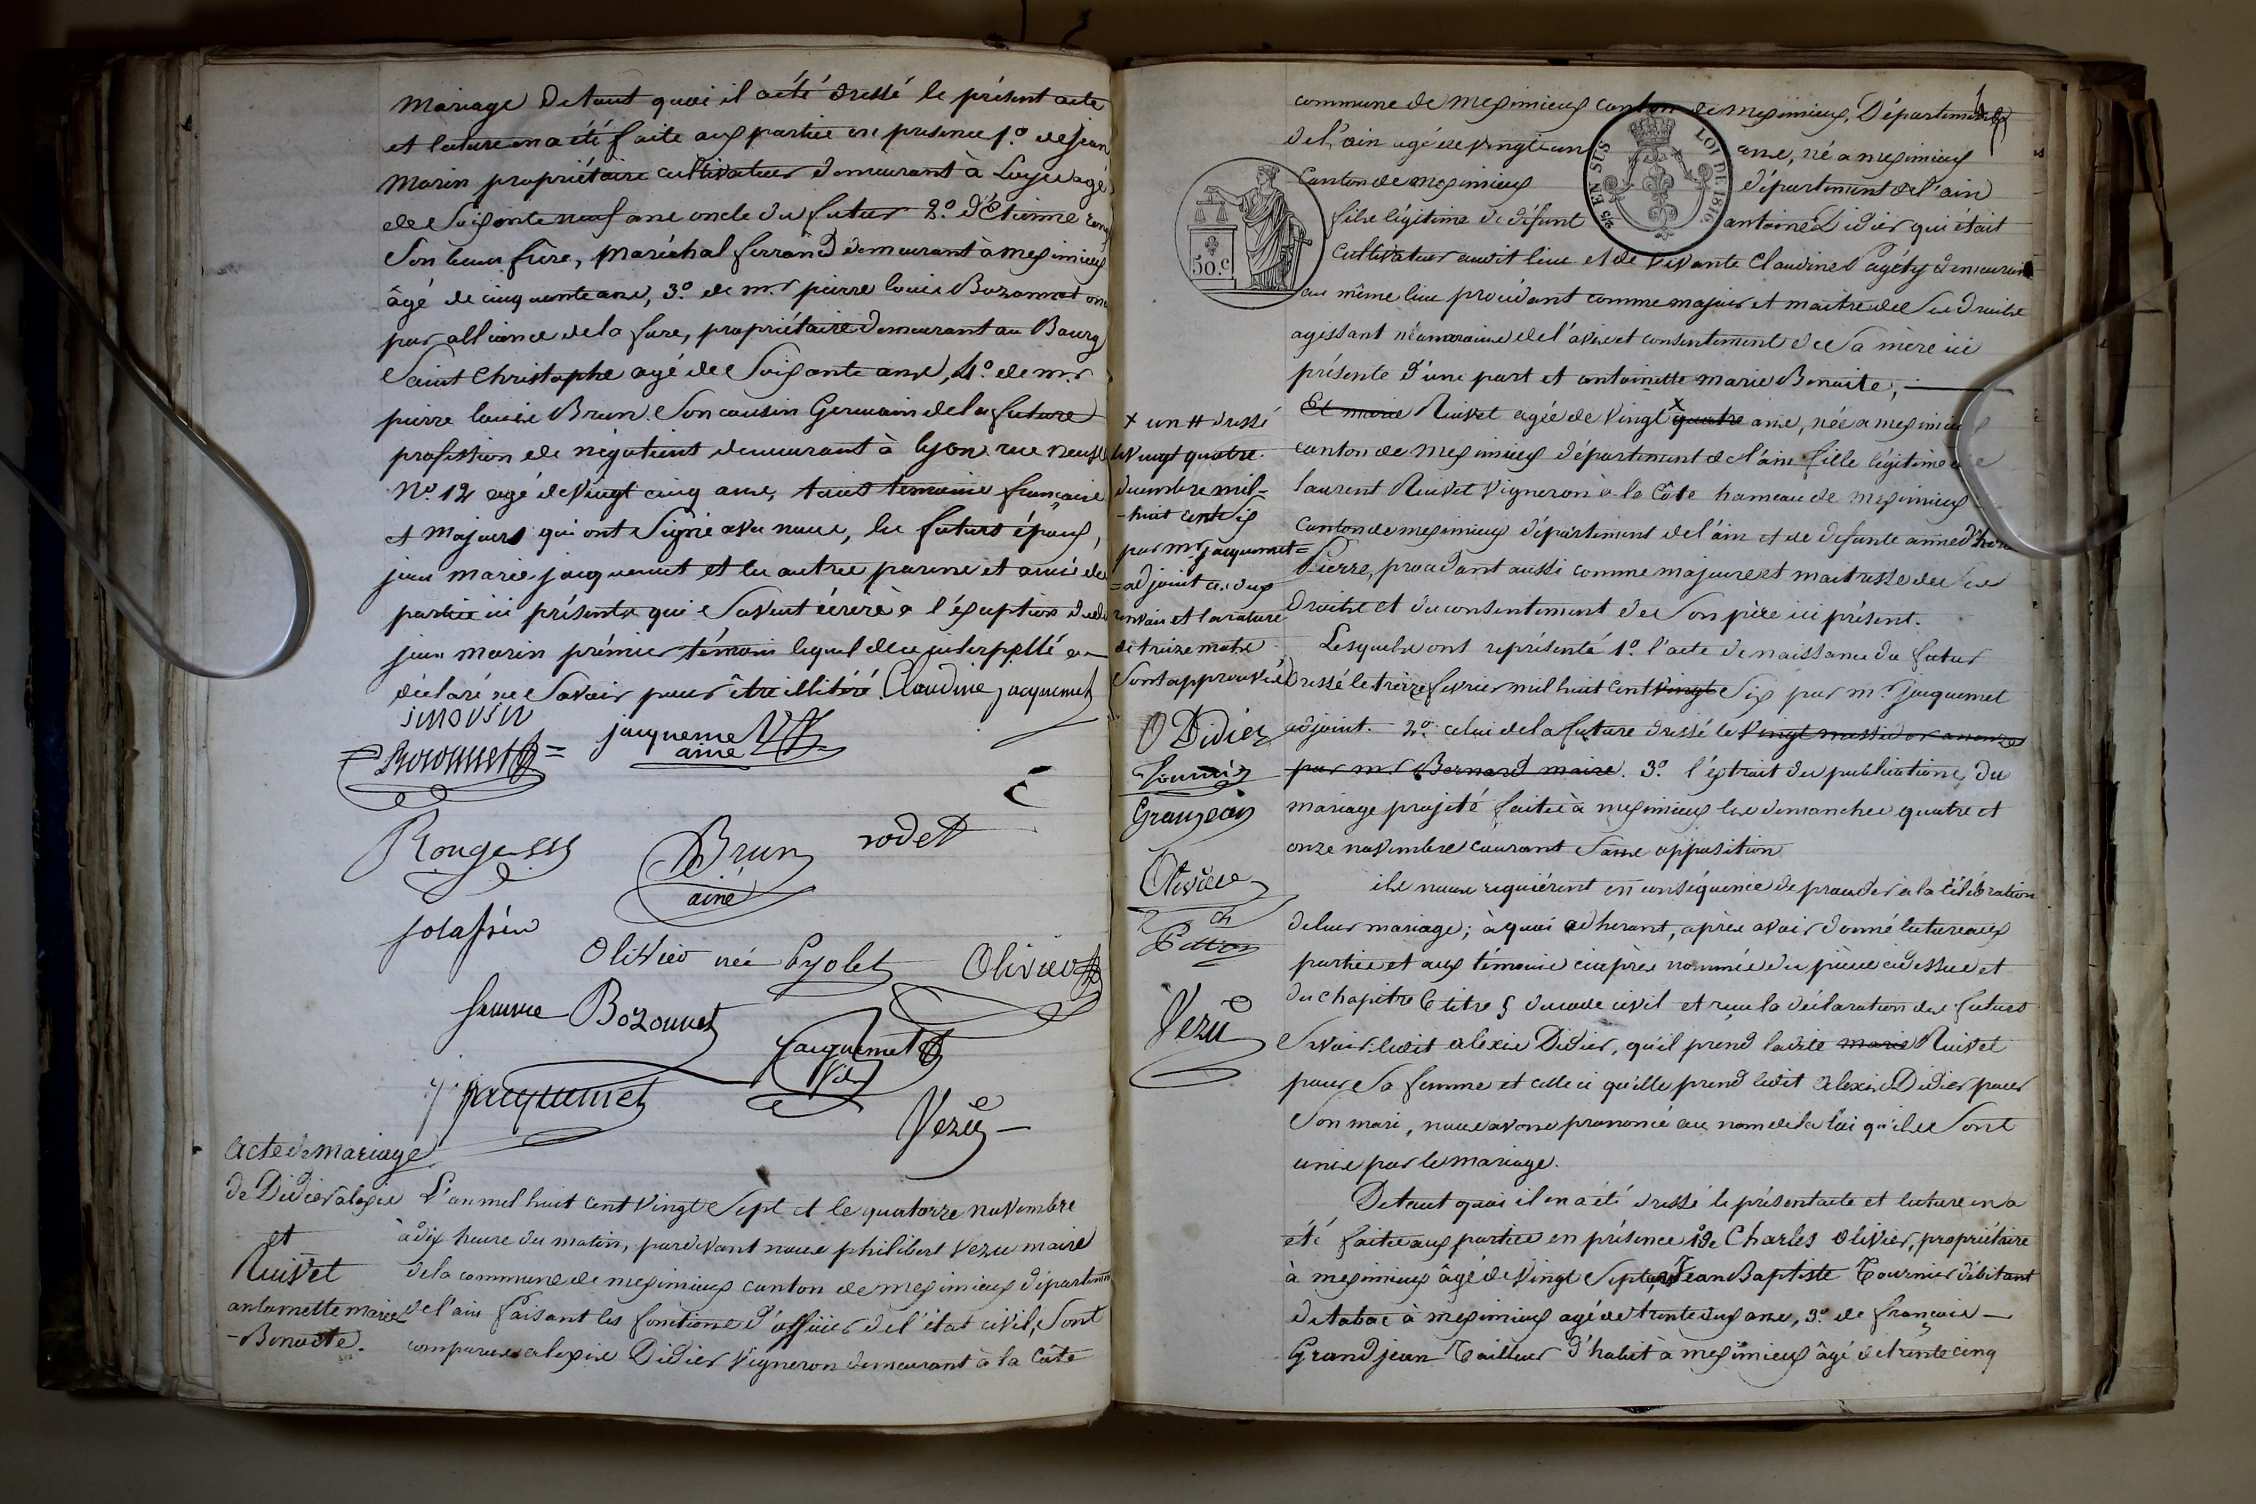 mariage De tout quoi il a été dressé le présent acte
et lecture en a été faite aux parties en présence 1.º de jean
Morin propriétaire cultivateur demeurant à Loyes agé
de Soixante neuf ans oncle du futur 2.º d'Étienne
Son beau frère, maréchal ferrand demeurant à meximieux
âgé de cinquante ans, 3.º de m.r pierre louis Bozonnet oncle
par alliance de la future, propriétaire demeurant au Bourg
Saint Christophe agé de Soixante ans, 4.º de m.r
pierre louis Brun Son cousin Germain de la future
profession de négotient demeurant à lyon rue neuve
N.º 12 agé de vingt cinq ans, tous temoins français
et majeurs qui ont Signé avec nous, les futurs époux,
jean marie jacquemet et les autres parens et amis des
parties ici présents qui Savent écrire à l'exeption dudit
jean morin prémier témoin lequel de ce interpellé a
déclaré ne Savoir pour être illitéré Claudine jacquemet
jacquemet
ainé
Bozonnet
Rouge
Brun
ainé
rodet
Olivier née Pyolet Olivier
femme Bozonnet
jacquemet
fils
j. jacquemet
Vezu
acte de mariage
de Didier alexis
et
Ruivet
antoinette marie
- Benoite.
L'an mil huit cent vingt Sept et le quatorze novembre
à dix heures du matin, pardevant nous philibert Vezu maire
de la commune de meximieux canton de meximieux département
de l'ain faisant les fonctions d'officier de l'état civil, Sont
comparus alexis Didier vigneron demeurant à la Côte
commune de meximieux canton de meximieux, Département
de l'ain agé de vingt un ans, né a meximieux
Canton de meximieux département de l'ain
fils légitime de défunt antoine Didier qui était
Cultivateur audit lieu et de vivante Claudine Pagety demeurant
au même lieu procédant comme majeur et maitre de Ses droits
agissant néanmoins de l'avis et consentement de Sa mère ici
présente d'une part et antoinette marie Benoite,
Et marie Ruivet agée de vingt x quatre ans, née a meximieux
canton de meximieux département de l'ain fille légitime de
laurent Ruivet vigneron à la Côte hameau de meximieux
canton de meximieux département de l'ain et de defunte anne
Pierre, procédant aussi comme majeure et maitresse de Ses
Droits et du consentement de Son père ici présent.
Lesquels ont représenté 1.º l'acte de naissance du futur
dressé le treize fevrier mil huit cent vingt Six par m.r jacquemet
adjoint. 2.º celui de la future dressé le vingt messidor an onze
par m.r Bernard maire. 3.º l'extrait des publications du
mariage projeté faites à meximieux les dimanches quatre et
onze novembre courant Sans opposition
ils nous requiérent en conséquence de procéder à la célébration
de leur mariage; à quoi adhérant, après avoir donné lecture aux
parties et aux témoins ciaprès nommés des pièces cidessus et
du chapitre 6 titre 5 du code civil et reçu la déclaration des futurs
Savoir ledit alexis Didier, qu'il prend ladite marie Ruivet
pour Sa femme et celle ci qu'elle prend ledit alexis Didier pour
Son mari, nous avons prononcé au nom de la loi qu'ils Sont
unis par le mariage.
De tout quoi il en a été dressé le présent acte et lecture en a
été faite aux parties en présence 1º de Charles Olivier, propriétaire
à meximieux âgé de vingt Sept ans, Jean Baptiste Tournier débitant
de tabac à meximieux agé de trente deux ans, 3.º de françois
Grandjean Tailleur d'habit à meximieux âgé de trente cinq
x un # dressé
le vingt quatre
décembre mil=
-huit cent Six
par m.r jacquemet=
=adjoint ces deux
renvois et la rature
de treize mots
Sont approuvés
Didier
Grangean
Olivier
Vezu
50.c
2/5 EN SUS
LOI DE 1816.